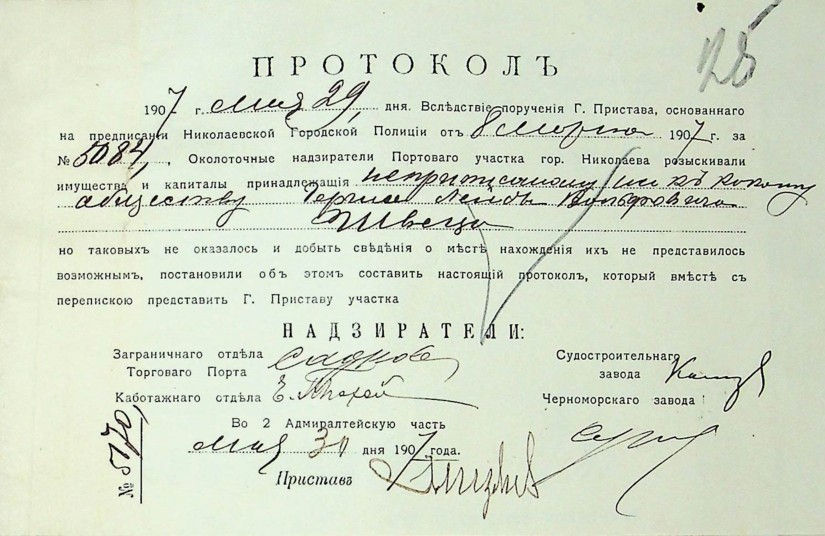 ПРОТОКОЛЪ
1907 г. мая 29, дня. Вслѣдствіе порученія Г. Пристава, основаннаго
на предписаніи Николаевской Городской Полиціи отъ 8 Марта 1907 г. за
№ 5084, , Околоточные надзиратели Портоваго участка гор. Николаева розыскивали
имущества и капиталы принадлежащія неприписаному ни къ какому
обществу Вольфовича
Швеца
но таковыхъ не оказалось и добыть свѣдѣнія о мѣстѣ нахожденія ихъ не представилось
возможнымъ, постановили объ этомъ составить настоящій протоколъ, который вмѣстѣ съ
перепискою представить Г. Приставу участка
НАДЗИРАТЕЛИ:
Заграничнаго отдѣла
Торговаго Порта
Судостроительнаго
завода
Каботажнаго отдѣла
Черноморскаго завода
Во 2 Адмиралтейскую часть
мая 30 дня 1907 года.
Приставъ
№ 5170,